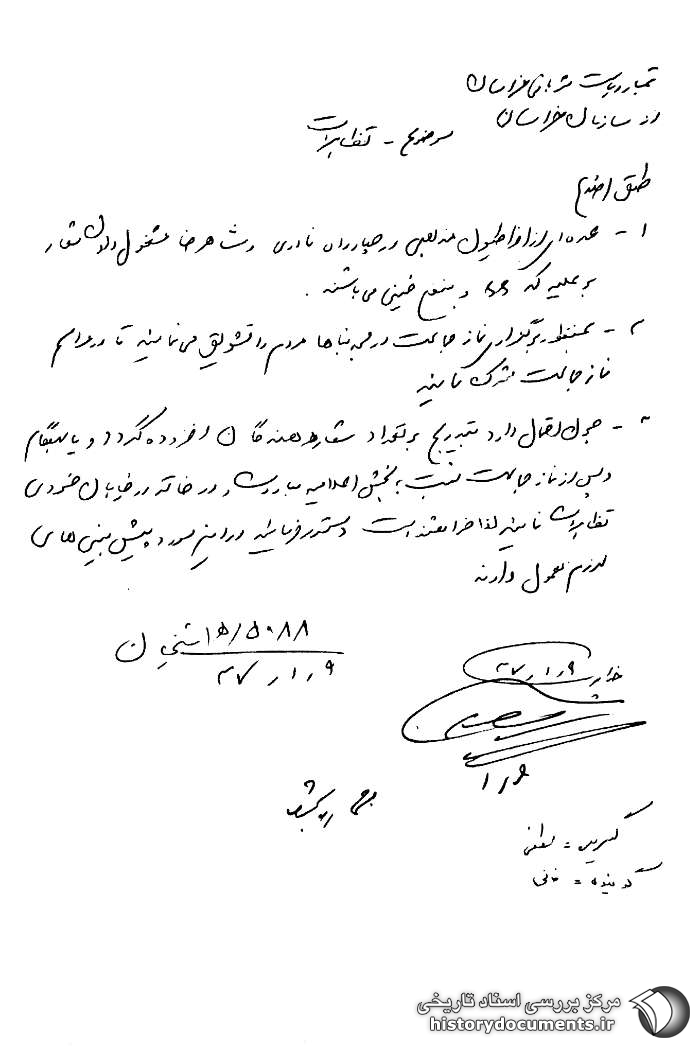 تیمسار ریاست شهربانی خراسان
از سازمان خراسان
موضوع - تظاهرات
طبق
۱- عده‌ای از افراطیون مذهبی در چهارراه نادری و شاهرضا مشغول دادن شعار
بر علیه و بنفع خمینی می باشند.
۲- بمنظور برگزاری نماز جماعت در مردم را تشویق می نمایند تا در مراسم
نماز جماعت شرکت نمایند
۳- چون احتمال دارد بتدریج بر تعداد شعار دهندگان افزوده گردد و یا بهنگام
و پس از نماز جماعت نسبت به پخش اعلامیه مبادرت و در خاتمه در خیابان خسروی
تظاهرات نمایند لذا خواهشمند است دستور فرمایند در این مورد پیش بینی های
لازم معمول دارند
۱۵/۵۰۸۸
۹ر۱ر۳۷
۹ر۱ر۳۷
۹ر۱
گیرنده =
گوینده =
مرکز بررسی اسناد تاریخی
historydocuments.ir